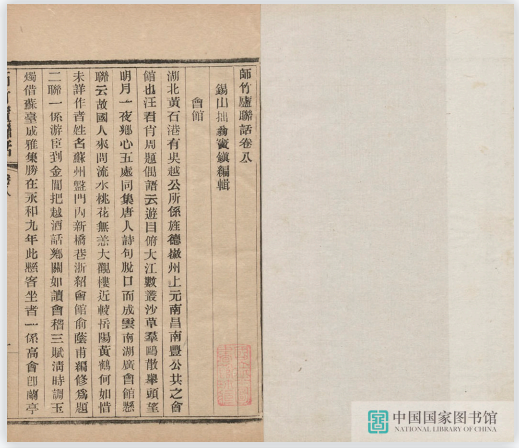 師竹廬聯話卷八
錫山拙叟竇鎮編輯
會館
湖北黃石港有吳越公所係旌德徽州上元南昌南豐公共之會
館也汪君肯周題偶語云遊目俯大江數叢沙草羣鷗散舉頭望
明月一夜鄉心五處同集唐人詩句脫口而成雲南湖廣會館懸
聯云故國人來問流水桃花無恙大觀樓近較岳陽黃鶴何如惜
未詳作者姓名蘇州盤門內新橋巷浙紹會館俞蔭甫編修爲題
二聯一係游宦到金閶把越酒話鄉關如讀會稽三賦淸時調玉
燭借蘇臺成雅集勝在永和九年此懸客坐者一係高會卽蘭亭
中国国家图书馆
NATIONAL LIBRARY OF CHINA